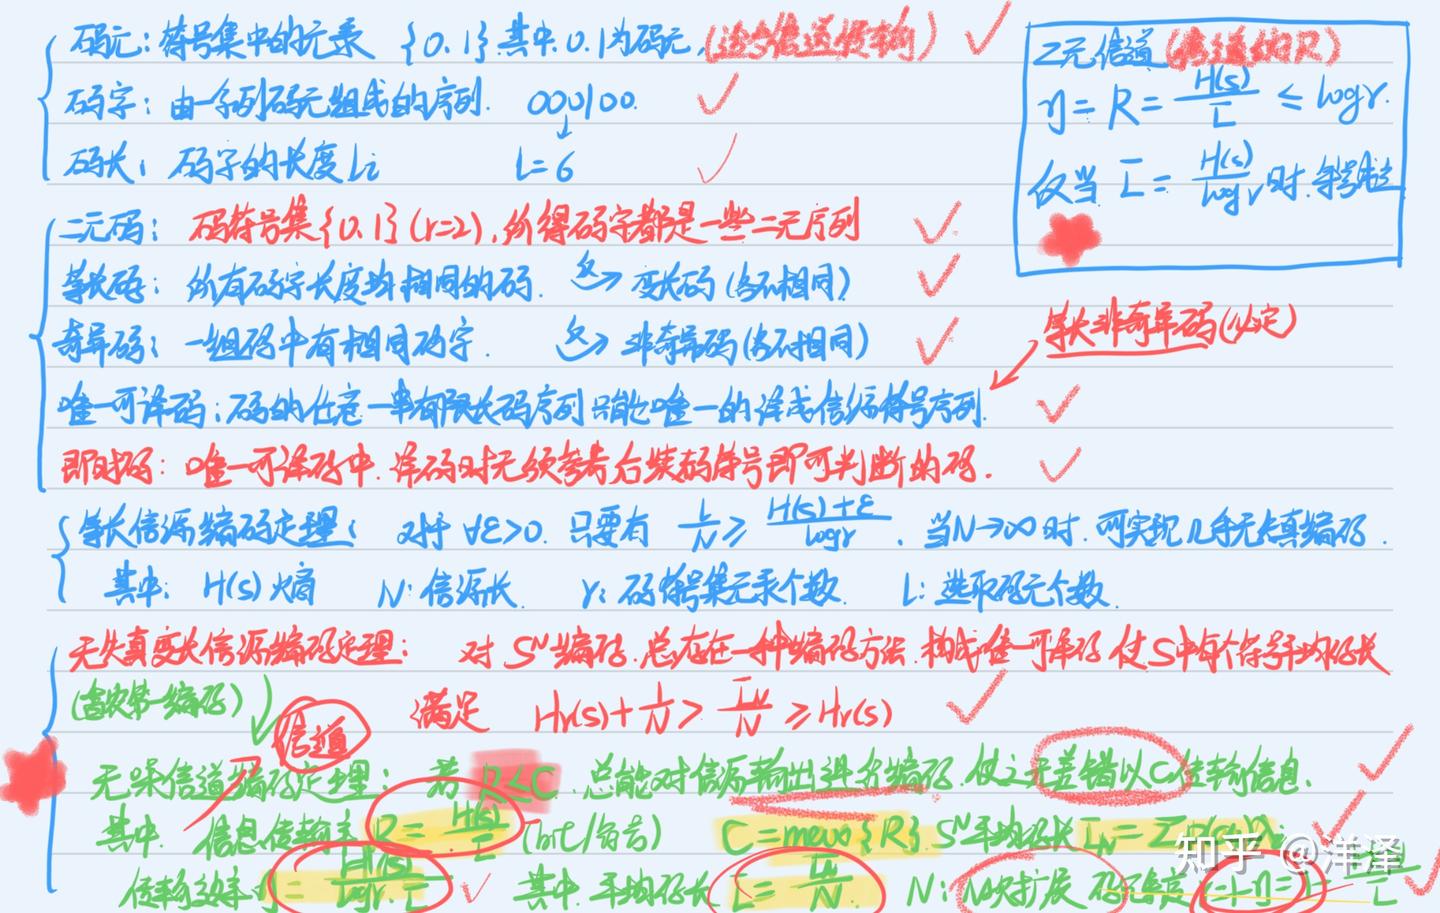 码元：符号集中的元素 {0.1}其中.0.1为码元,(适合信道传输)
码字：由一字列码元组成的序列. 000100.
码长：码字的长度Li L=6
二元信道(信道的R)
η=R=H(s)/L̄ ≤ logr.
仅当 L̄=H(s)/logr时.等号成立
二元码：码符号集{0.1}(r=2),所得码字都是一些二元序列
等长码：所有码字长度均相同的码. 反→ 变长码(各不相同)
奇异码：一组码中有相同码字. 反→ 非奇异码(各不相同)
等长非奇异码(必定)
唯一可译码：码的任意一串有限长码序列只能唯一的译成信源符号序列.
即时码：唯一可译码中.译码时无须参考后续码符号即可判断的码.
等长信源编码定理：对于∀ε>0.只要有 L/N ≥ H(s)+ε/logr. 当N→∞时.可实现几乎无失真编码.
其中：H(s)熵 N:信源长. r:码符号集元素个数. L:选取码元个数.
无失真变长信源编码定理：对S^N编码.总存在一种编码方法.构成唯一可译码.使S中每个符号平均码长
(香农第一编码) 满足 Hr(s)+1/N > L̄N/N ≥ Hr(s)
信道
无噪信道编码定理：若R<C.总能对信源输出进行编码.使之无差错以C传输信息.
其中.信息传输率R=H(s)/L̄(bit/符号) C=max{R} S^N平均码长L̄N=
传输效率η=H(s)/logr·L̄ 其中.平均码长L̄=L̄N/N N:N次扩展 码冗余度
知乎 @洋泽